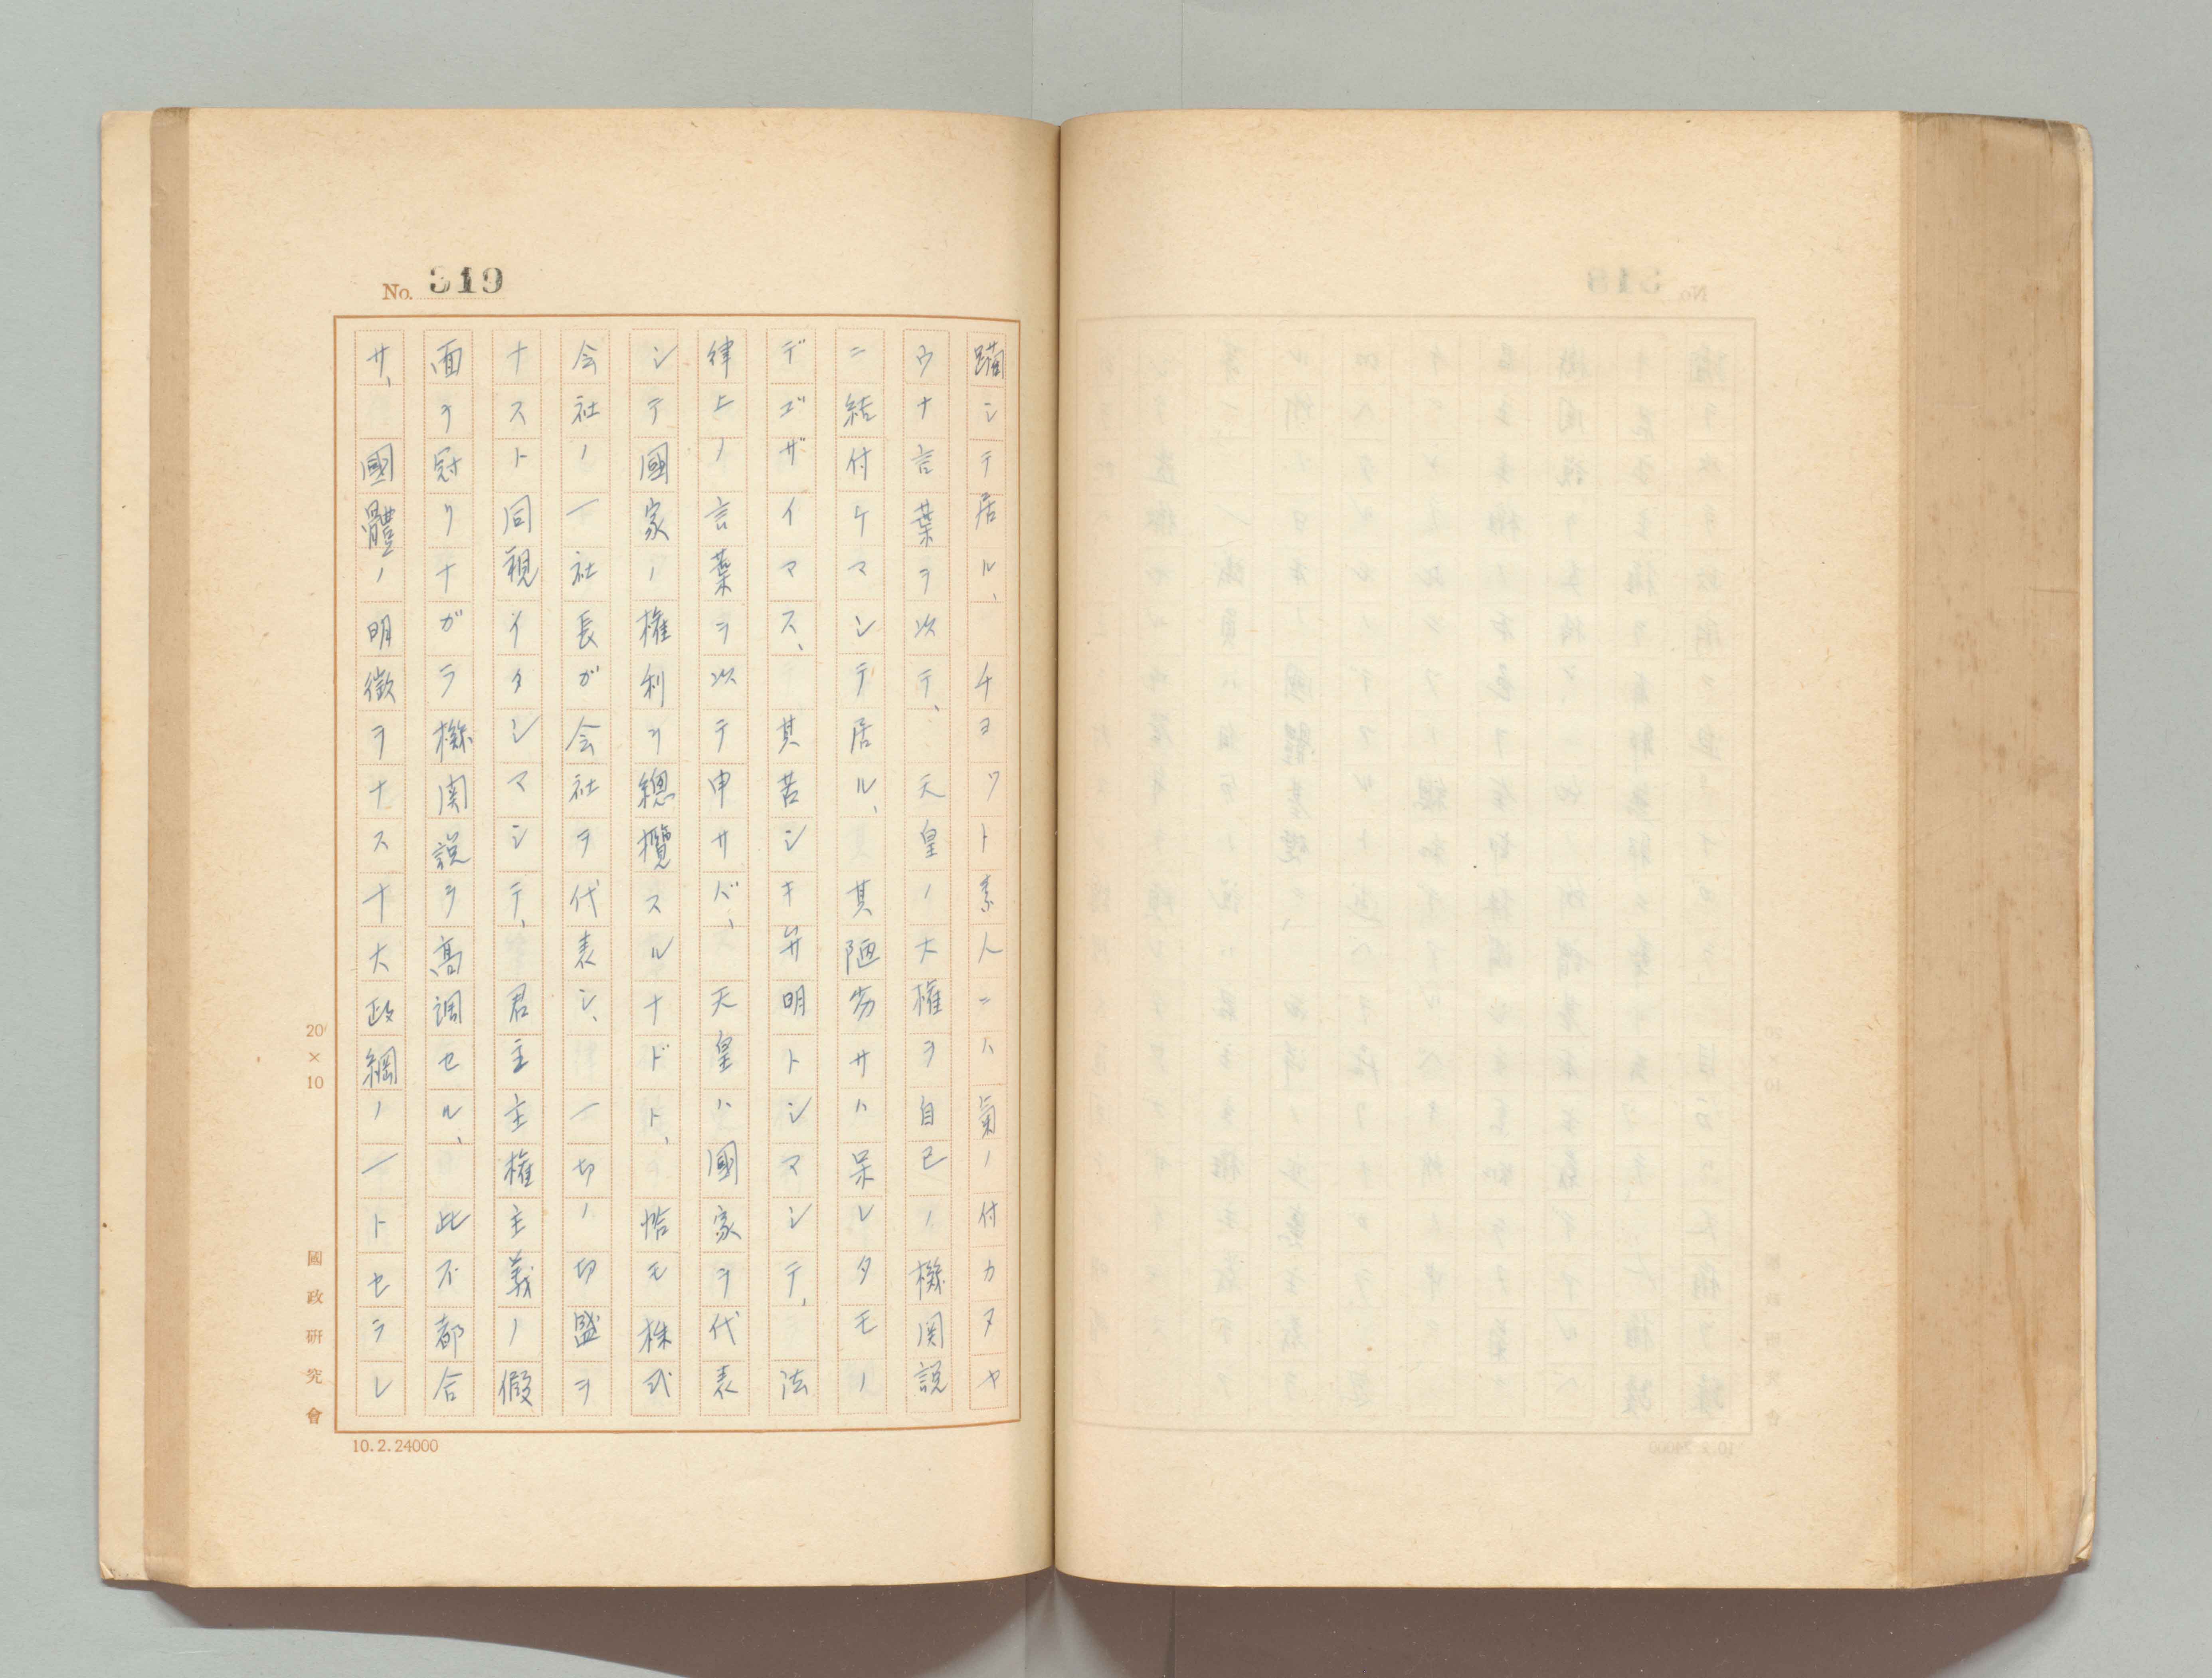 No. 319
蹈シテ居ル、チヨツト素人ニハ氣ノ付カヌヤ
ウナ言葉ヲ以テ、天皇ノ大權ヲ自己ノ機関説
ニ結付ケマシテ居ル、其陋劣サハ呆レタモノ
デゴザイマス、其苦シキ弁明トシマシテ、法
律上ノ言葉ヲ以テ申サバ、天皇ハ國家ヲ代表
シテ國家ノ權利ヲ總攬スルナドト、恰モ株式
会社ノ一社長ガ会社ヲ代表シ、一切ノ切盛ヲ
ナスト同視イタシマシテ、君主主權主義ノ假
面ヲ冠リナガラ機関説ヲ高調セル、此不都合
サ、國體ノ明徴ヲナス十大政綱ノ一トセラレ
20×10
國政研究會
10.2.24000